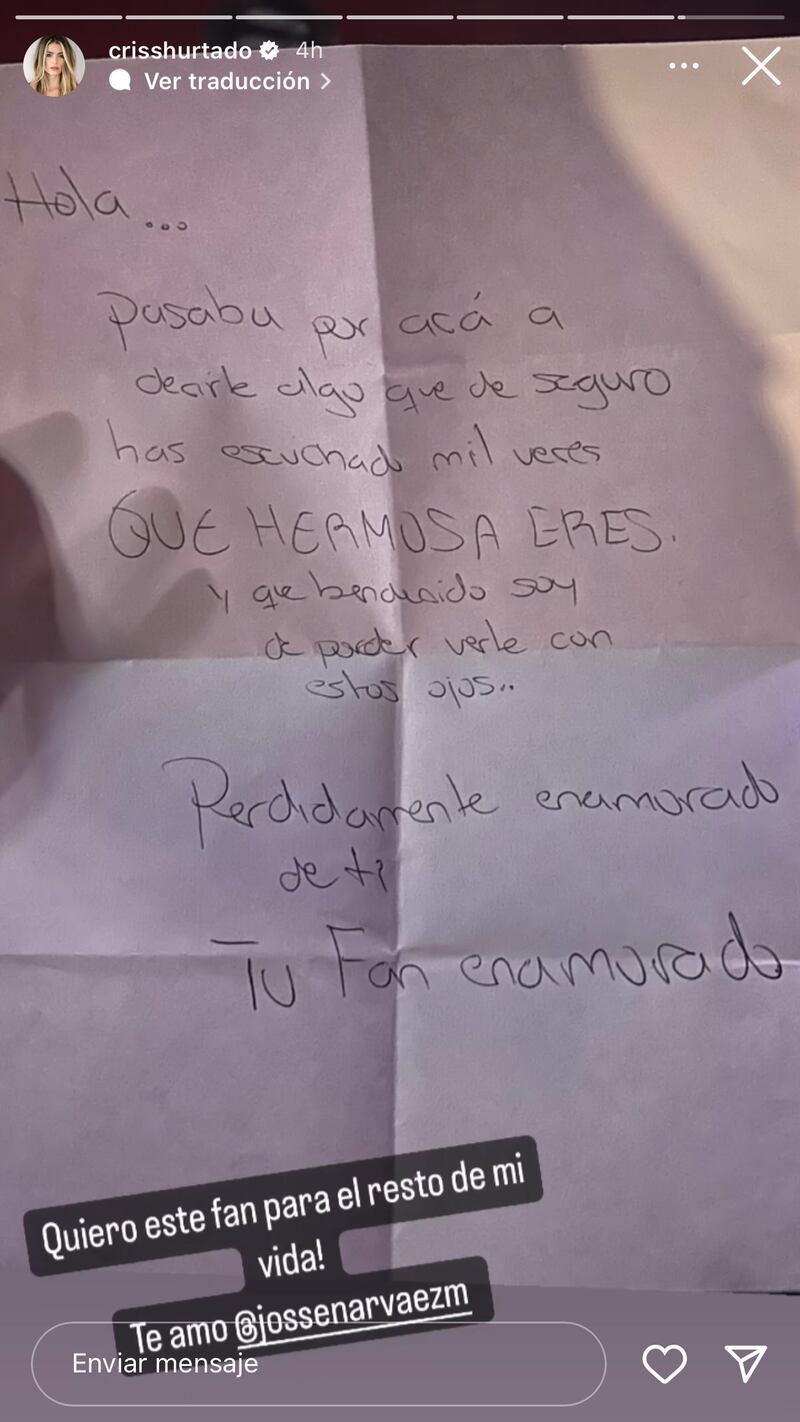 crisshurtado 4h
Ver traducción
Hola...
pasaba por acá a
decirle algo que de seguro
has escuchado mil veces
QUE HERMOSA ERES.
y que bendecido soy
de poder verle con
estos ojos..
Perdidamente enamorado
de ti
Tu Fan enamorado
Quiero este fan para el resto de mi
vida!
Te amo @jossenarvaezm
Enviar mensaje